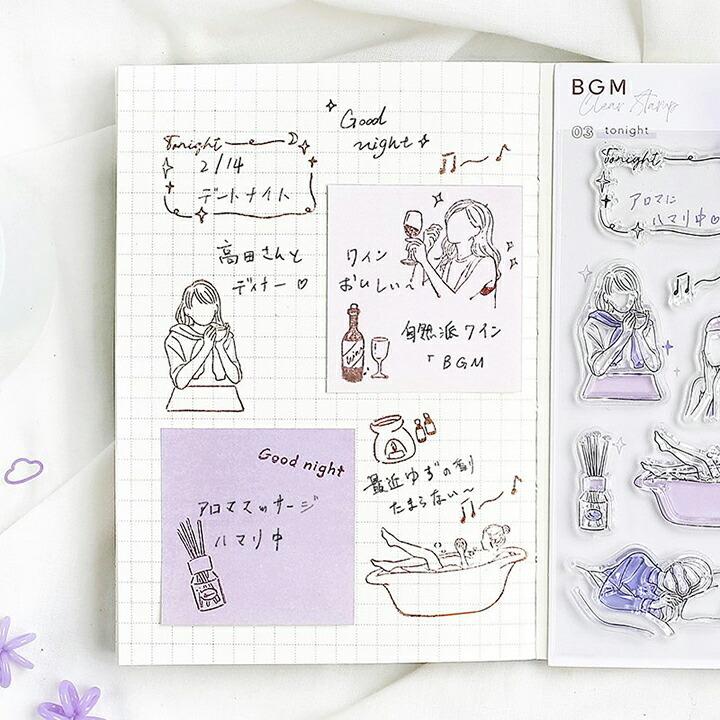 Good
night
Tonight
2/14
デートナイト
高田さんと
ディナー♡
ワイン
おいしい〜
Wine
自然派ワイン
「BGM
Good night
アロママッサージ
ハマり中
最近ゆずの香り
たまらない〜
BGM
Clear Stamp
03 tonight
Tonight
アロマに
ハマり中♡